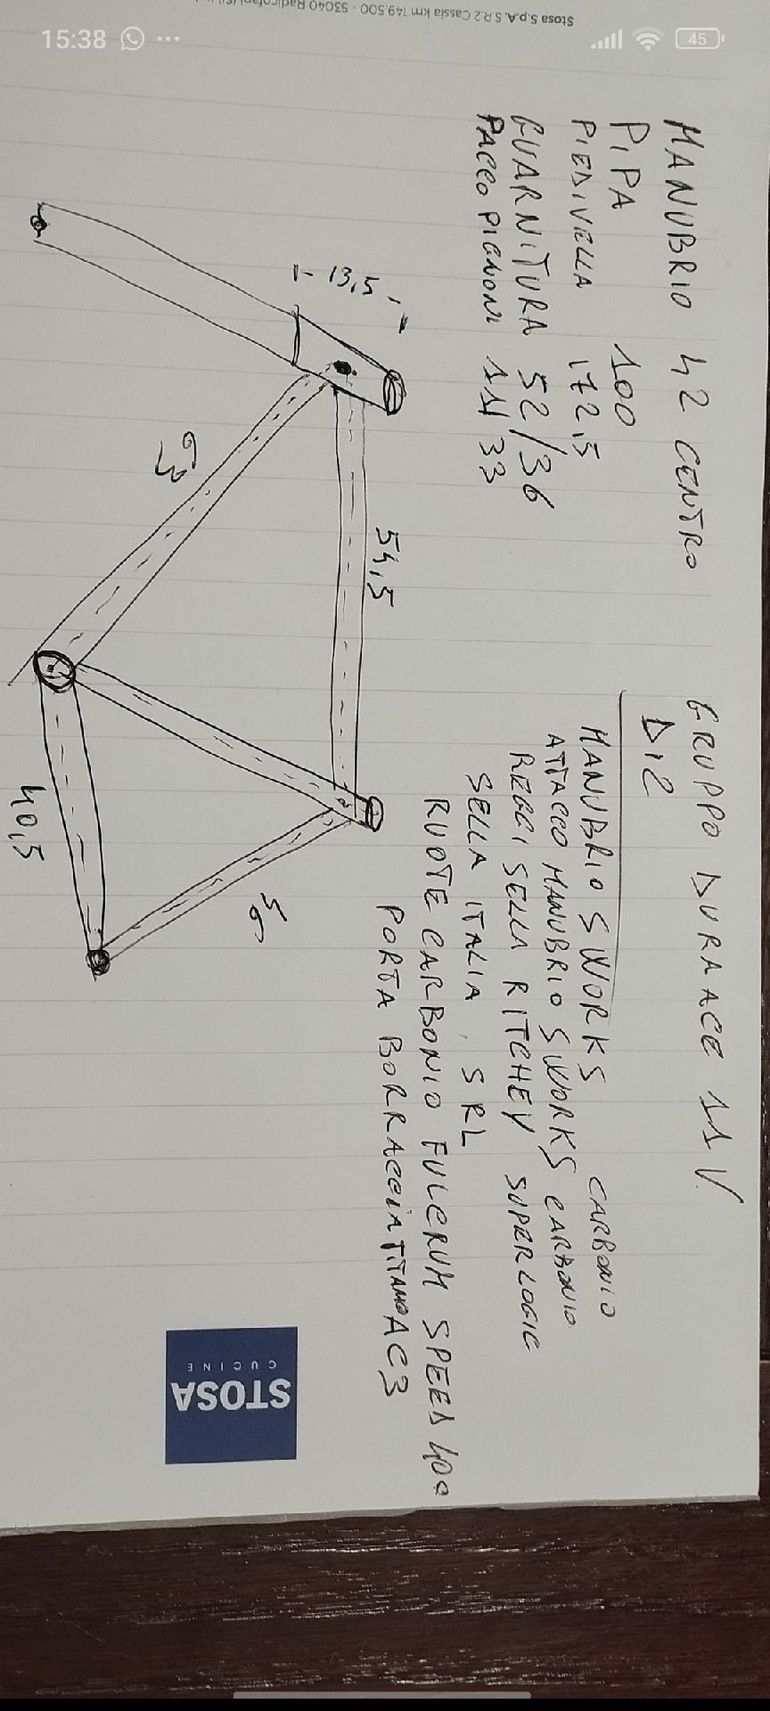 15:38
45
MANUBRIO 42 CENTRO
PIPA 100
PIEDIVELLA 172,5
GUARNITURA 52/36
PACCO PIGNONI 11/33
GRUPPO DURAACE 11 V.
DI2
MANUBRIO SWORKS CARBONIO
ATTACCO MANUBRIO SWORKS CARBONIO
REGGI SELLA RITCHEY SUPERLOGIC
SELLA ITALIA, SRL
RUOTE CARBONIO FULCRUM SPEED 40
PORTA BORRACCIA TITANIO AC3
13,5
54,5
63
40,5
STOSA
CUCINE
Stosa S.p.A. S.R.2 Cassia km 149.500 - 53040 Radicofani